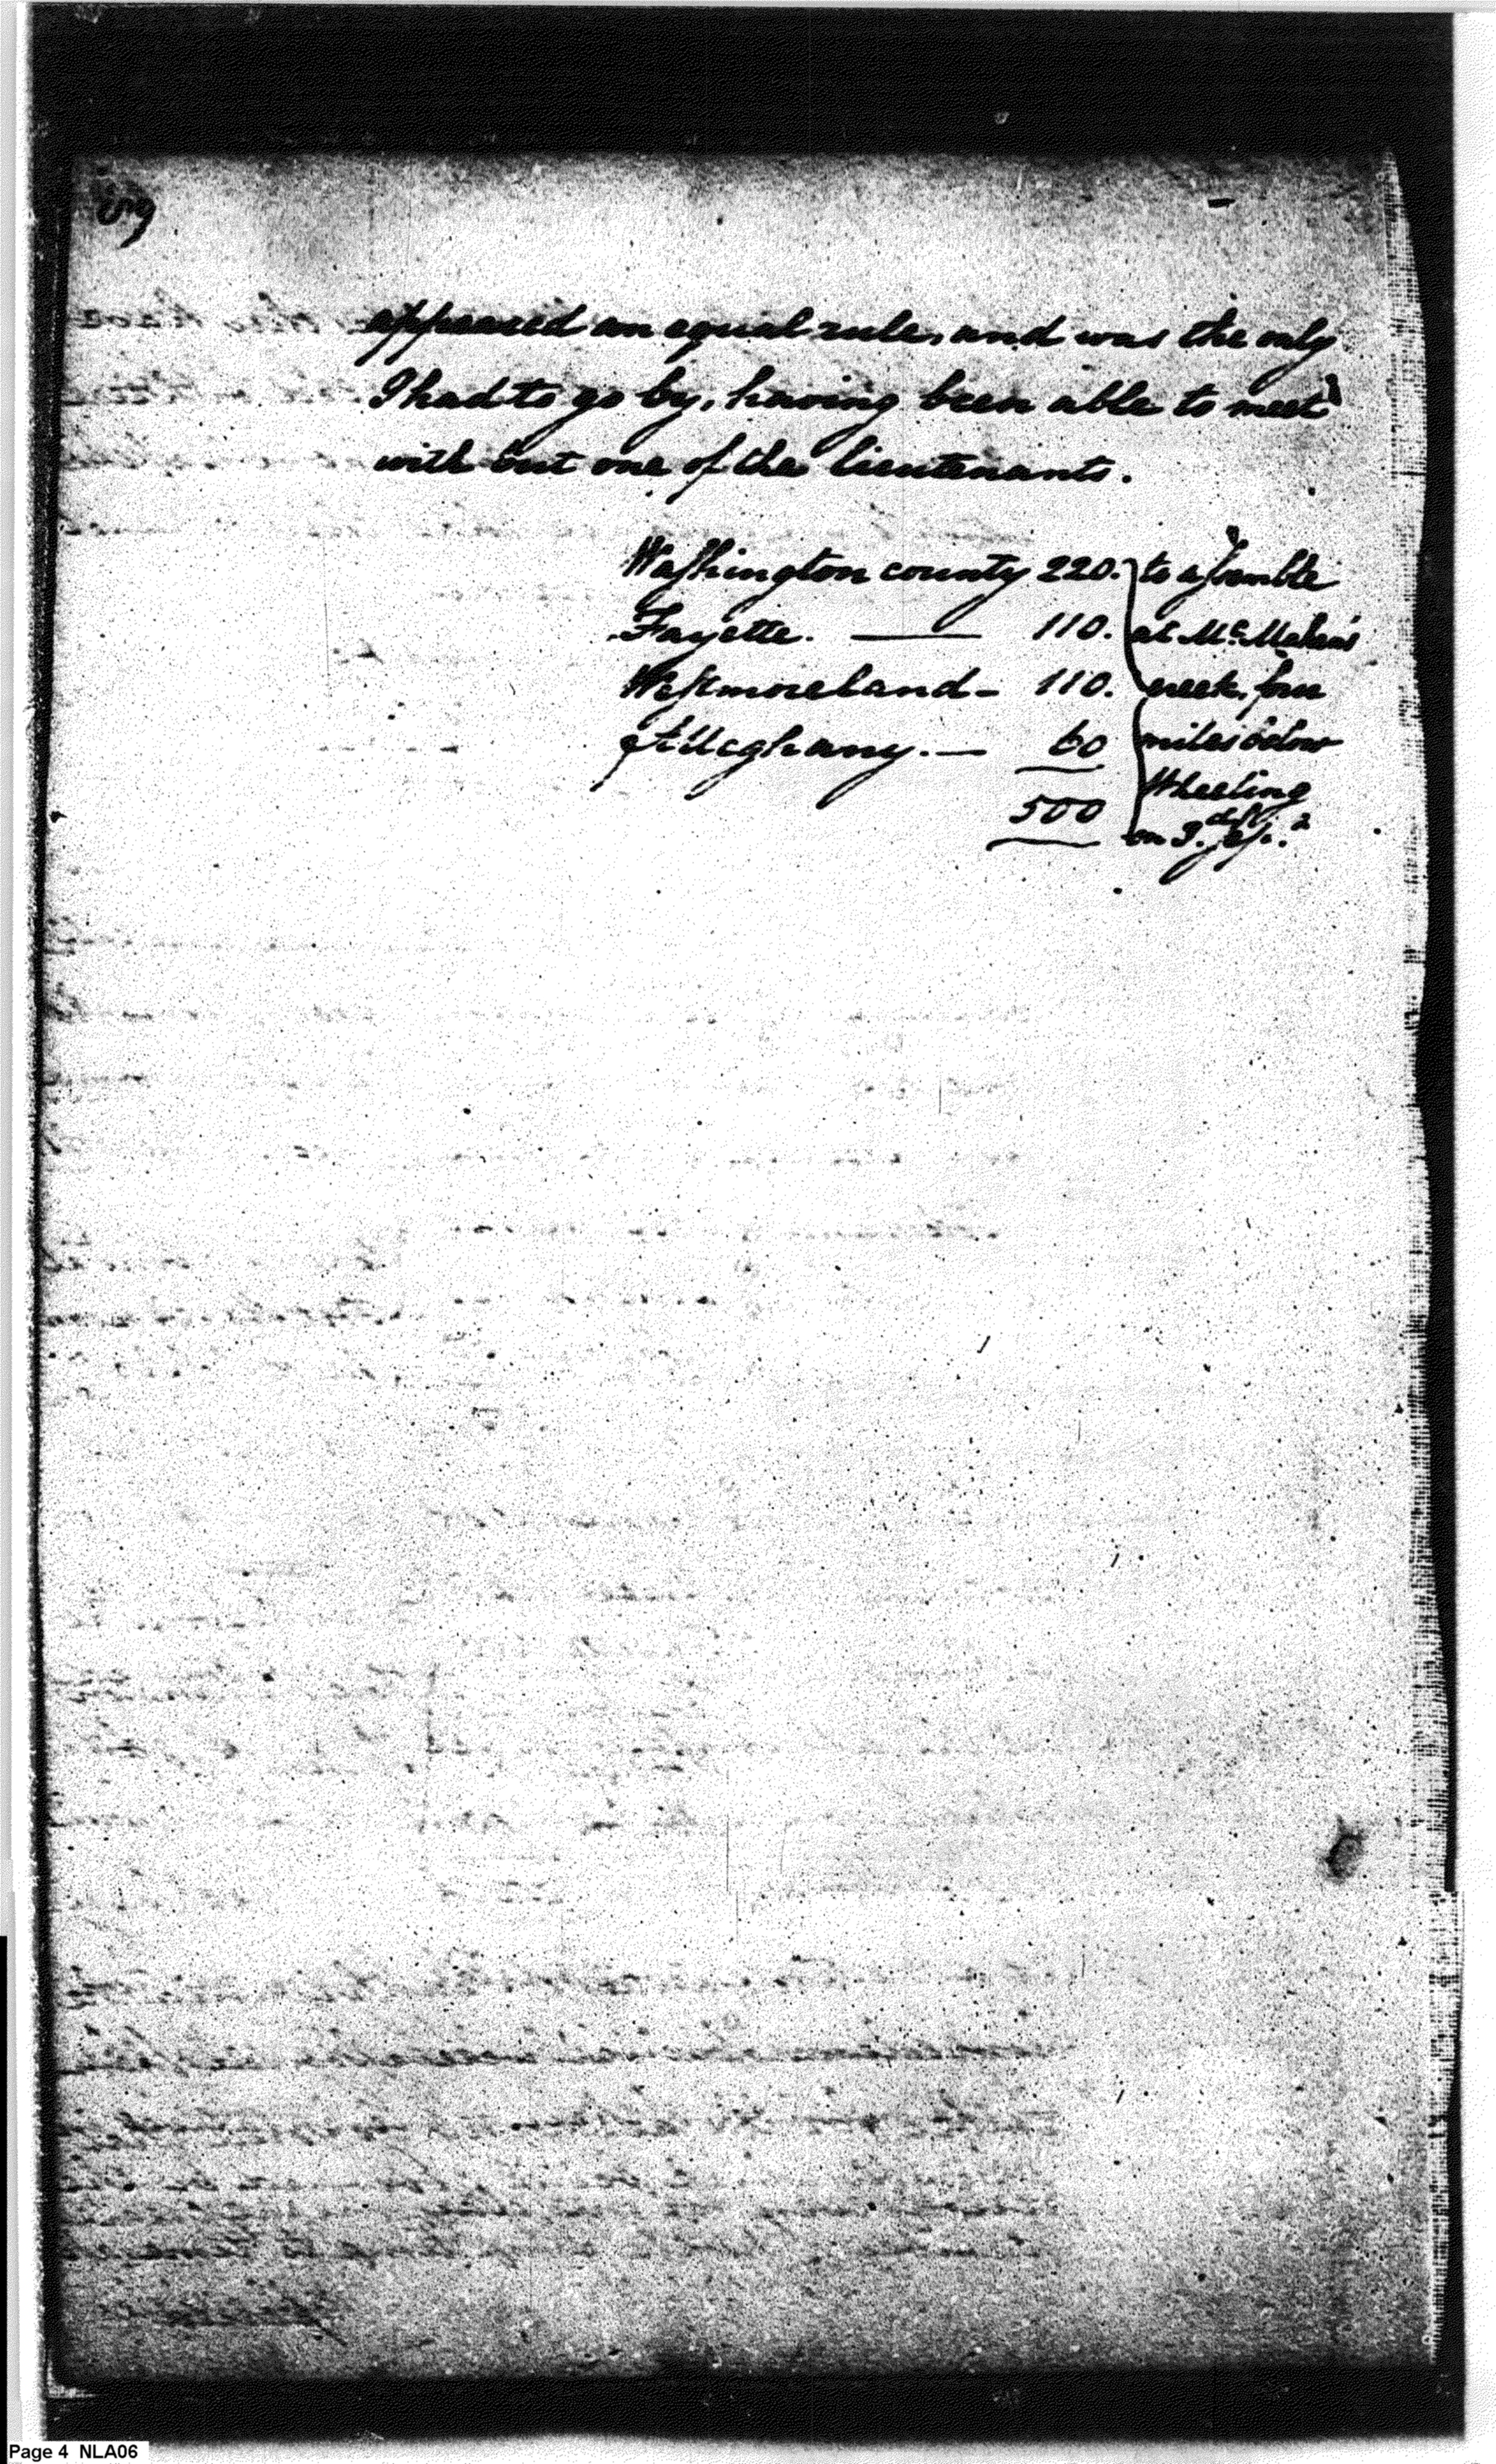 appeared an equal rule, and was the only
I had to go by, having been able to meet
with but one of the lieutenants.
Washington county 220. to assemble
Fayette. — 110. at Mc Mahan's
Westmoreland - 110. creek, four
Alleghany. — 60 miles below
500 Wheeling
on 3.
Page 4 NLA06